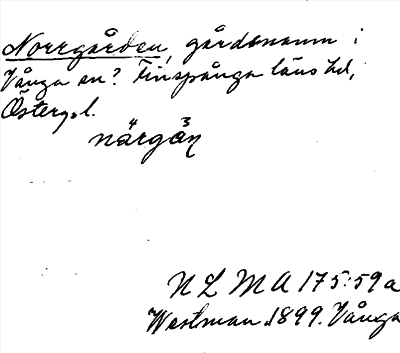 Norrgården, gårdsnamn i
Vånga sn? Finspånga läns hd,
Östergöl.
närgån
N L M A 175:59a
Westman 1899. Vånga